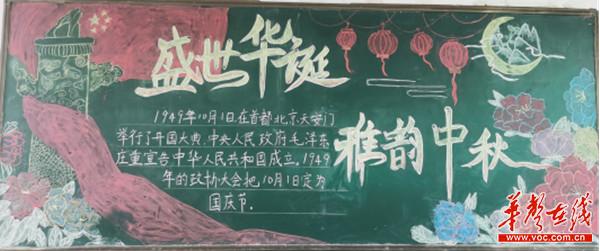 盛世华诞
1949年10月1日在首都北京天安门
举行了开国大典,中央人民政府毛泽东
庄重宣告中华人民共和国成立,1949
年的政协大会把10月1日定为
国庆节.
雅韵中秋
华声在线
www.voc.com.cn